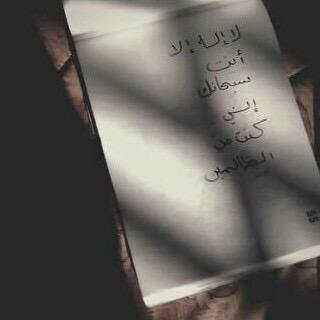 لا إله إلا
أنت
سبحانك
إني
كنت من
الظالمين